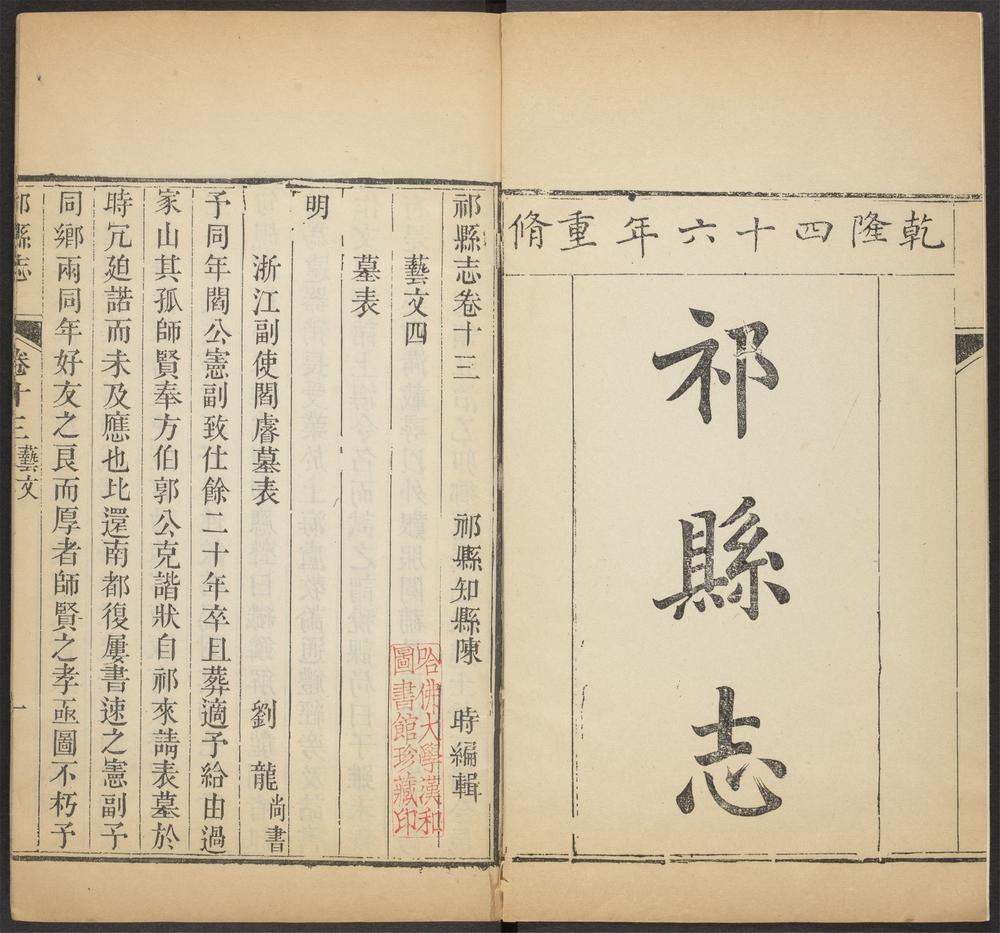 乾隆四十六年重脩
祁縣志
祁縣志卷十三
祁縣知縣陳　時編輯
哈佛大學漢和
圖書館珍藏印
藝文四
墓表
明
浙江副使閻睿墓表　劉龍尚書
予同年閻公憲副致仕餘二十年卒且葬適予給由過
家山其孤師賢奉方伯郭公克諧狀自祁來請表墓於
時冗廹諾而未及應也比還南都復屢書速之憲副予
同鄉兩同年好友之良而厚者師賢之孝亟圖不朽予
祁縣志　卷十三藝文　一